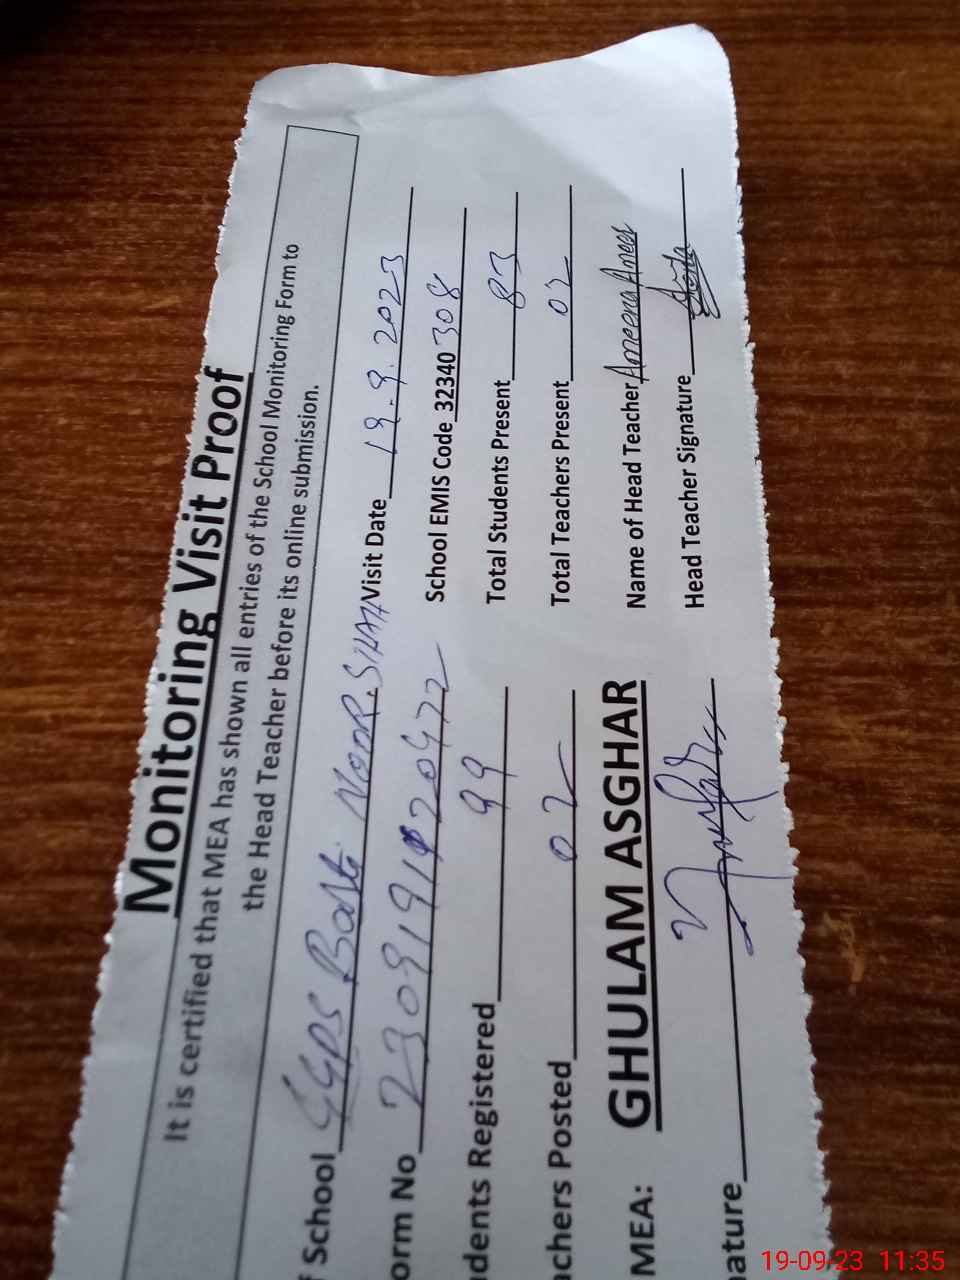 Monitoring Visit Proof
It is certified that MEA has shown all entries of the School Monitoring Form to
the Head Teacher before its online submission.
f School GGPS Basti NOOR.SHAH Visit Date 19.9.2023
orm No School EMIS Code 32340 308
dents Registered 99 Total Students Present 83
achers Posted 02 Total Teachers Present 02
MEA: GHULAM ASGHAR Name of Head Teacher Ameena Ameer
ature Head Teacher Signature
19-09-23 11:35